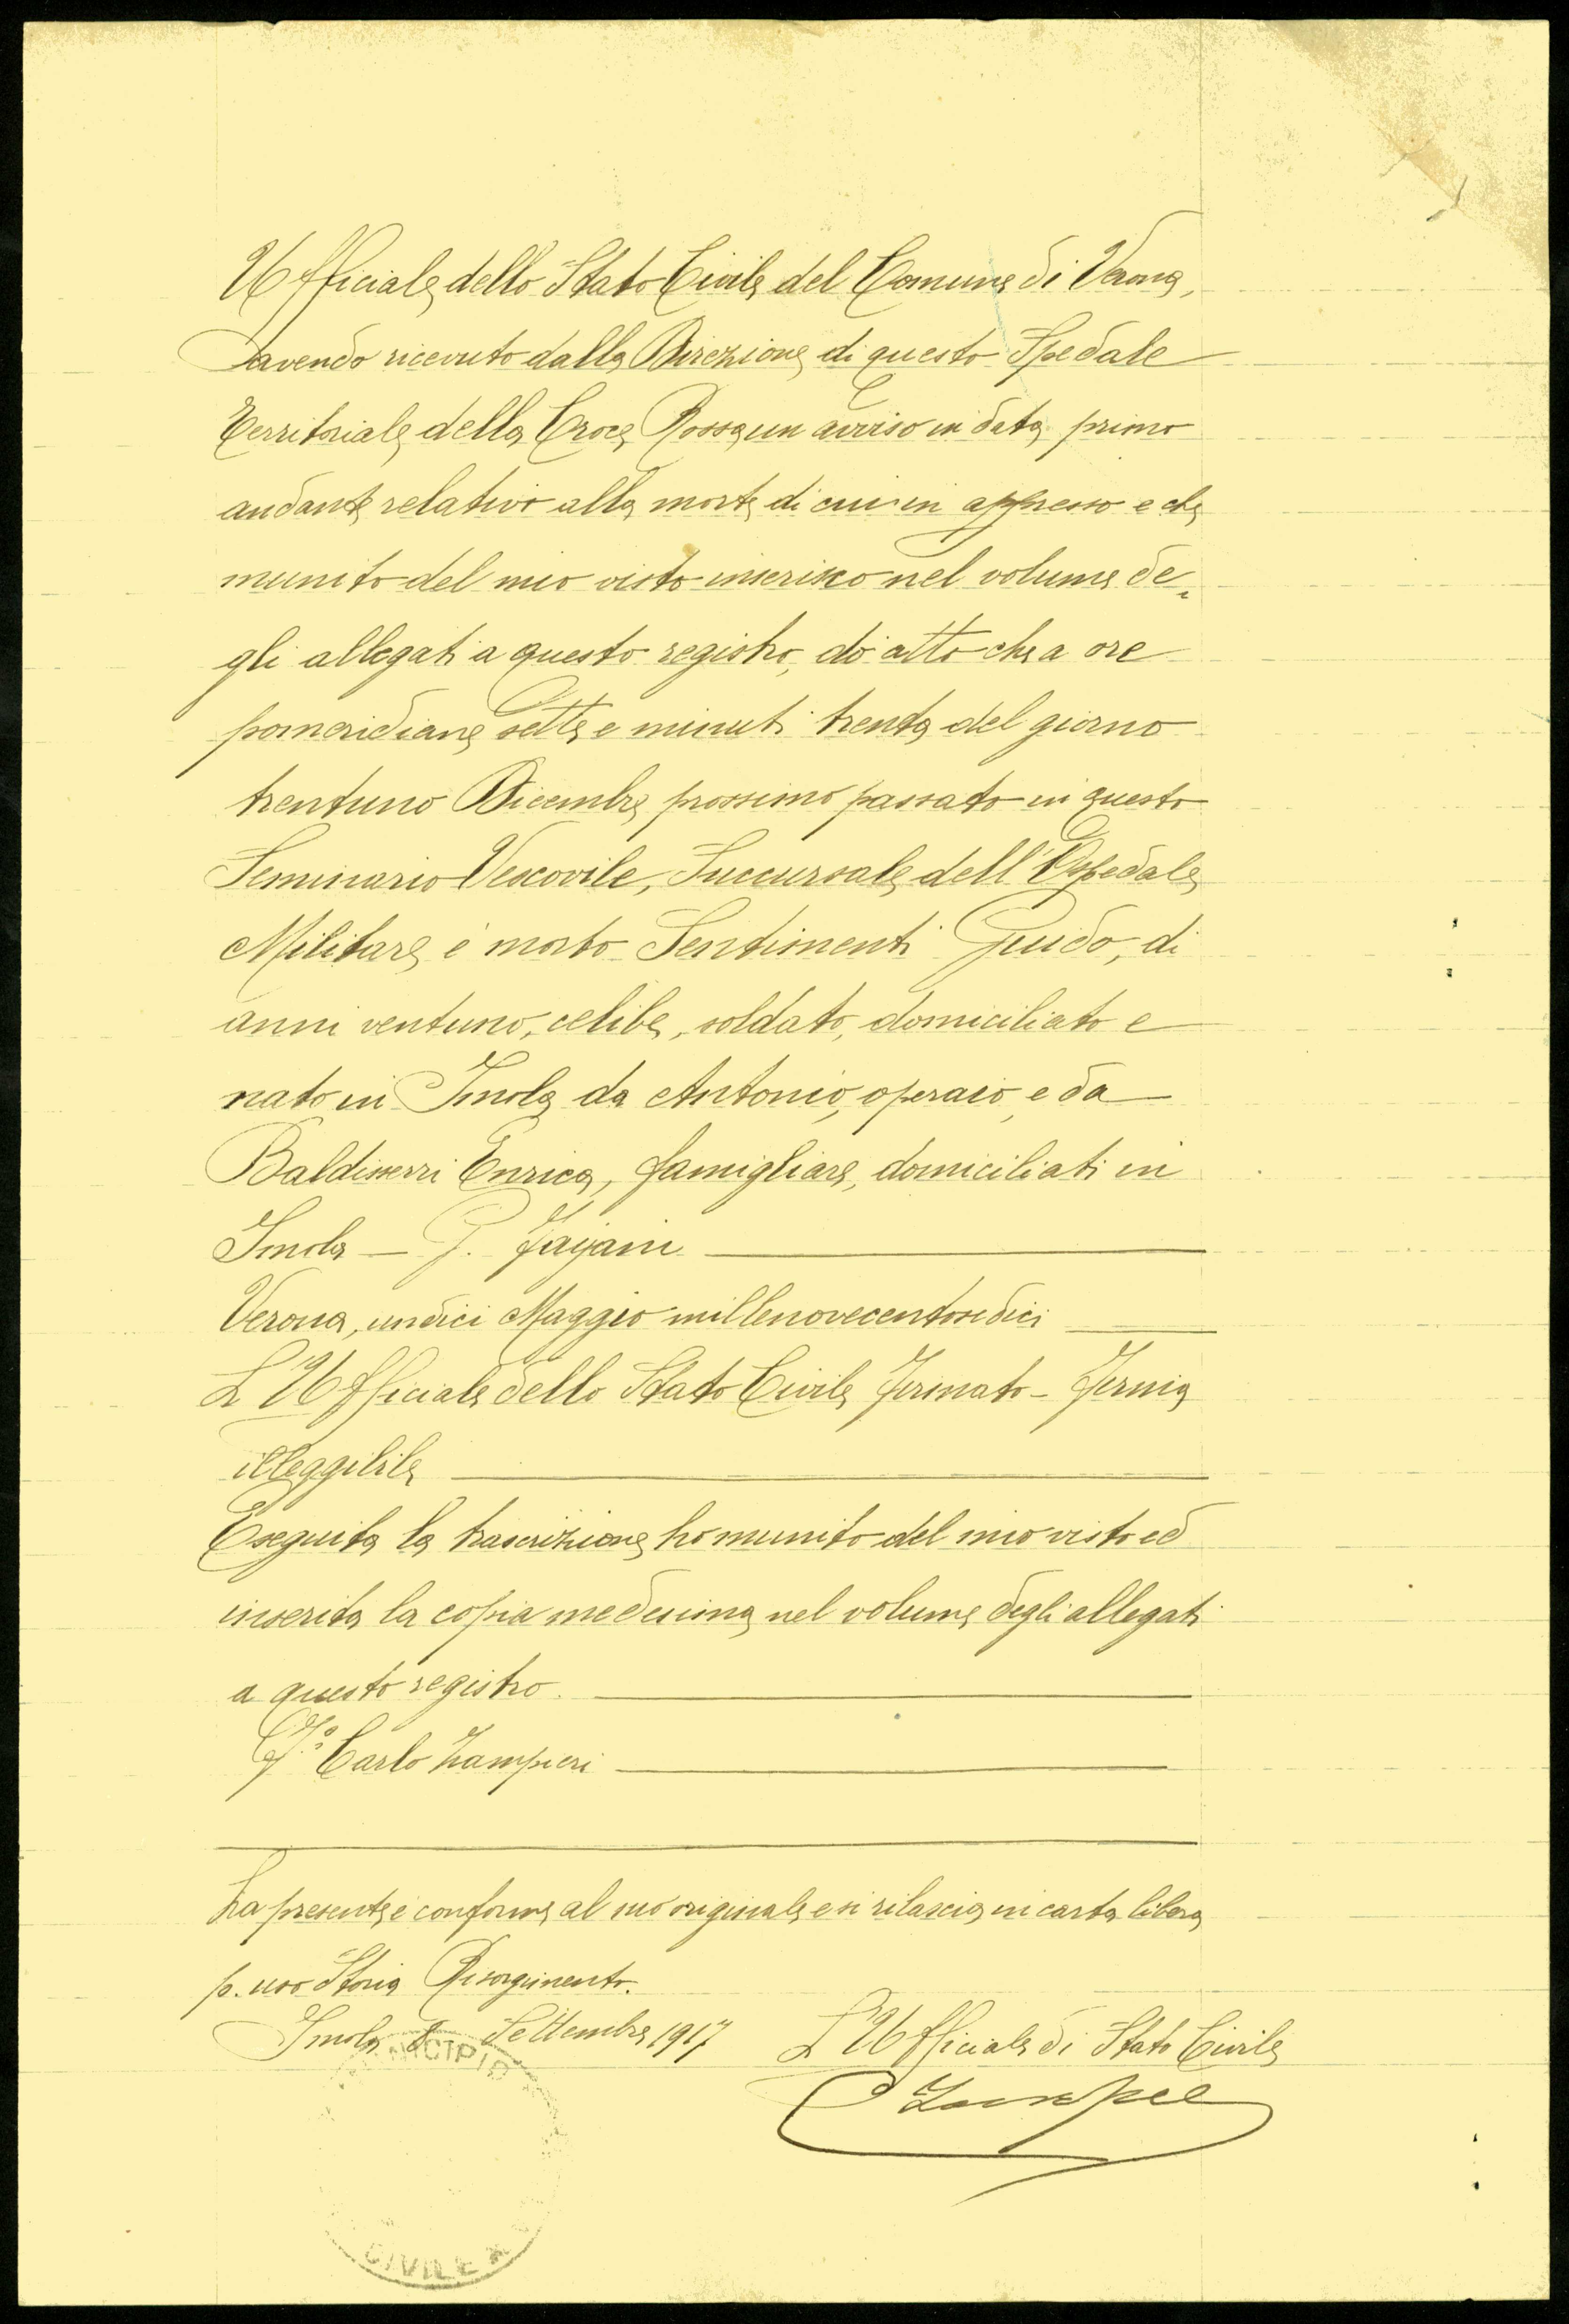 Ufficiale dello Stato Civile del Comune di Verona,
avendo ricevuto dalla Direzione di questo Spedale
Territoriale della Croce Rossa un avviso in data primo
andante relativo alla morte di cui in appresso e che
munito del mio visto inserisco nel volume de„
gli allegati a questo registro, dò atto che a ore
pomeridiane sette e minuti trenta del giorno
trentuno Dicembre prossimo passato in questo
Seminario Vescovile, Succursale dell'Ospedale
Militare è morto Sentimenti Guido, di
anni ventuno, celibe, soldato, domiciliato e
nato in Imola da Antonio, operaio, e da
Baldisserri Enrica, famigliare, domiciliati in
Imola — G.
Verona, undici Maggio millenovecentosedici
L'Ufficiale dello Stato Civile Firmato - Firma
illeggibile
Eseguita la trascrizione ho munito del mio visto ed
inserita la copia medesima nel volume degli allegati
a questo registro.
Fº Carlo Zampieri
La presente è conforme al suo originale e si rilascia in carta libera
p. uso Storia Risorgimento.
Imola 8 Settembre 1917 L'Ufficiale di Stato Civile
CIVILE